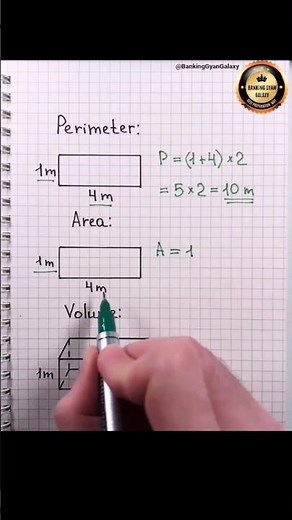 @BankingGyanGalaxy
BANKING GYAN
GALAXY
Perimeter:
1m
4m
P = (1+4) × 2
= 5 × 2 = 10 m
Area:
1m
4m
A = 1
Volume:
1m